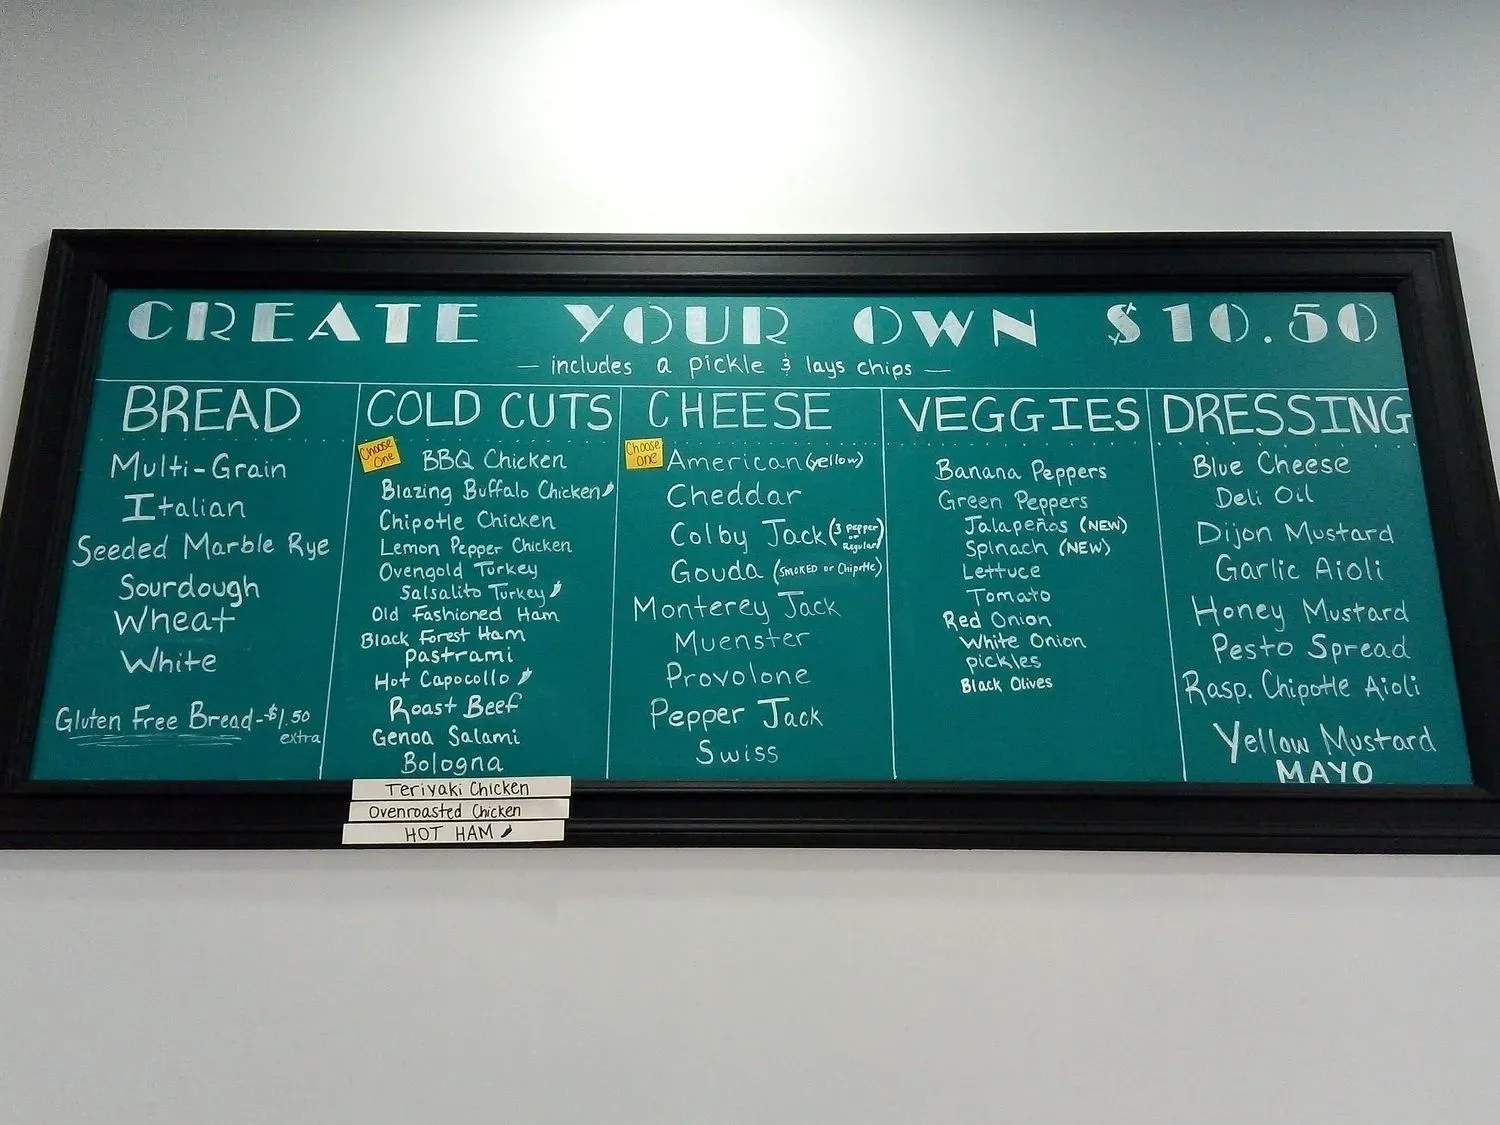 CREATE YOUR OWN $10.50
— includes a pickle & lays chips —
BREAD
Multi-Grain
Italian
Seeded Marble Rye
Sourdough
Wheat
White
Gluten Free Bread-$1.50
extra
COLD CUTS
Choose
One
BBQ Chicken
Blazing Buffalo Chicken
Chipotle Chicken
Lemon Pepper Chicken
Ovengold Turkey
Salsalito Turkey
Old Fashioned Ham
Black Forest Ham
Pastrami
Hot Capocollo
Roast Beef
Genoa Salami
Bologna
Teriyaki Chicken
Ovenroasted Chicken
HOT HAM
CHEESE
Choose
one
American (yellow)
Cheddar
Colby Jack (3 pepper
or
Regular)
Gouda (SMOKED or Chipotle)
Monterey Jack
Muenster
Provolone
Pepper Jack
Swiss
VEGGIES
Banana Peppers
Green Peppers
Jalapeños (NEW)
Spinach (NEW)
Lettuce
Tomato
Red Onion
White Onion
pickles
Black Olives
DRESSING
Blue Cheese
Deli Oil
Dijon Mustard
Garlic Aioli
Honey Mustard
Pesto Spread
Rasp. Chipotle Aioli
Yellow Mustard
MAYO